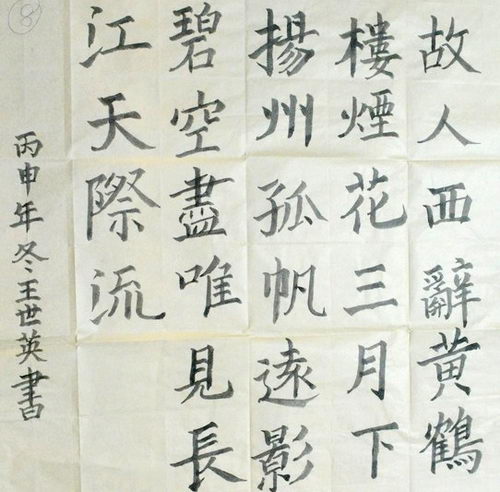 故人西辭黃鶴
樓煙花三月下
揚州孤帆遠影
碧空盡唯見長
江天際流
丙申年冬王世英書
⑧